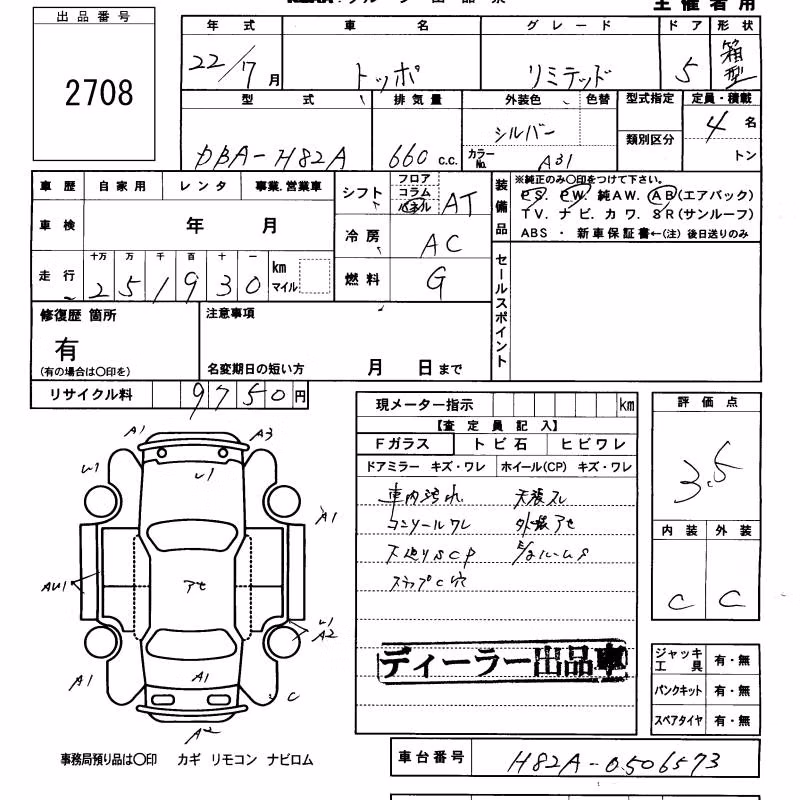 主催者用
出品番号
2708
年式 車名 グレード ドア 形状
22/7月 トッポ リミテッド 5 箱型
型式 排気量 外装色 色替 型式指定 定員・積載
類別区分
DBA-H82A 660 c.c. シルバー 4名
カラーNo. A31 トン
車歴 自家用 レンタ 事業.営業車
車検 年 月
走行 十万 万 千 百 十 一
251930 km マイル
シフト フロア コラム パネル AT
冷房 AC
燃料 G
装備品
※純正のみ○印をつけて下さい。
PS. PW. 純AW. AB(エアバック)
TV. ナビ. カワ. SR(サンルーフ)
ABS ・ 新車保証書←(注) 後日送りのみ
セールスポイント
修復歴 箇所
有
(有の場合は○印を)
注意事項
名変期日の短い方 月 日まで
リサイクル料 9750円
現メーター指示 km
【査定員記入】
Fガラス トビ石 ヒビワレ
ドアミラー キズ・ワレ ホイール(CP) キズ・ワレ
車内汚れ 天張スレ
コンソールワレ 外装アセ
下廻りSCP
ステップC穴
ディーラー出品車
評価点
3.5
内装 外装
C C
ジャッキ工具 有・無
パンクキット 有・無
スペアタイヤ 有・無
A1 A3
U1 U1
A1
AU1 アセ
U1
A2
A1 A1 C
A2
事務局預り品は○印 カギ リモコン ナビロム
車台番号 H82A-0506573